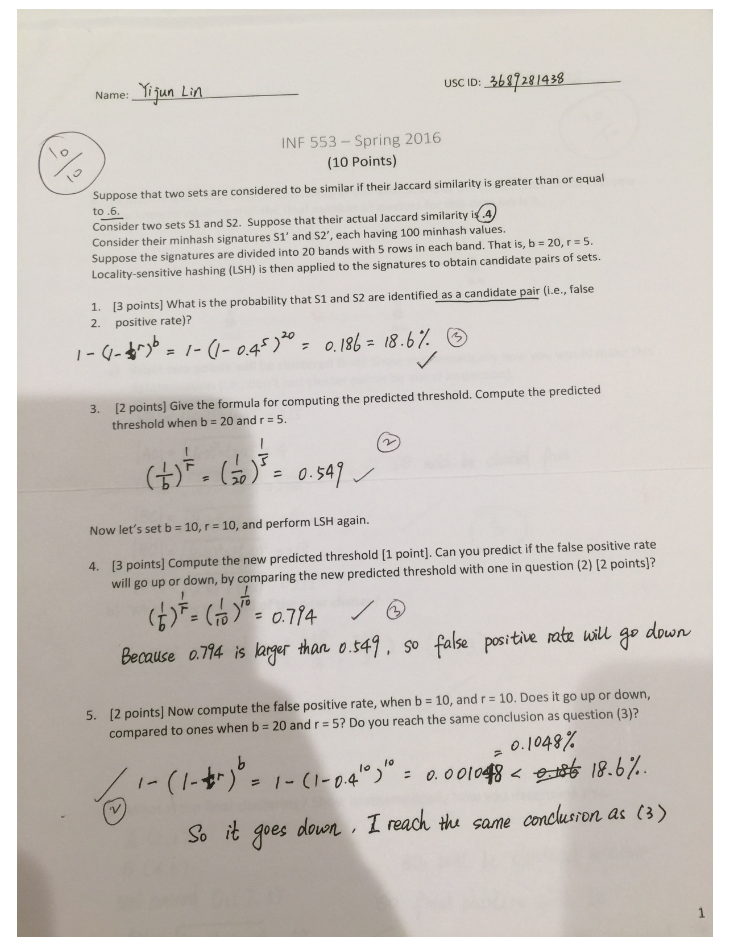 Name: Yijun Lin
USC ID: 3689281438
INF 553 – Spring 2016
(10 Points)
10/10
Suppose that two sets are considered to be similar if their Jaccard similarity is greater than or equal
to .6.
Consider two sets S1 and S2. Suppose that their actual Jaccard similarity is .4
Consider their minhash signatures S1' and S2', each having 100 minhash values.
Suppose the signatures are divided into 20 bands with 5 rows in each band. That is, b = 20, r = 5.
Locality-sensitive hashing (LSH) is then applied to the signatures to obtain candidate pairs of sets.
1. [3 points] What is the probability that S1 and S2 are identified as a candidate pair (i.e., false
2. positive rate)?
1-(1-t^r)^b = 1-(1-0.4^5)^20 = 0.186 = 18.6% ③
✓
3. [2 points] Give the formula for computing the predicted threshold. Compute the predicted
threshold when b = 20 and r = 5.
②
(1/b)^1/r = (1/20)^1/5 = 0.549 ✓
Now let's set b = 10, r = 10, and perform LSH again.
4. [3 points] Compute the new predicted threshold [1 point]. Can you predict if the false positive rate
will go up or down, by comparing the new predicted threshold with one in question (2) [2 points]?
(1/b)^1/r = (1/10)^1/10 = 0.794 ✓ ③
Because 0.794 is larger than 0.549, so false positive rate will go down
5. [2 points] Now compute the false positive rate, when b = 10, and r = 10. Does it go up or down,
compared to ones when b = 20 and r = 5? Do you reach the same conclusion as question (3)?
= 0.1048%
✓ 1-(1-t^r)^b = 1-(1-0.4^10)^10 = 0.001048 < 0.186 18.6%.
②
So it goes down, I reach the same conclusion as (3)
1